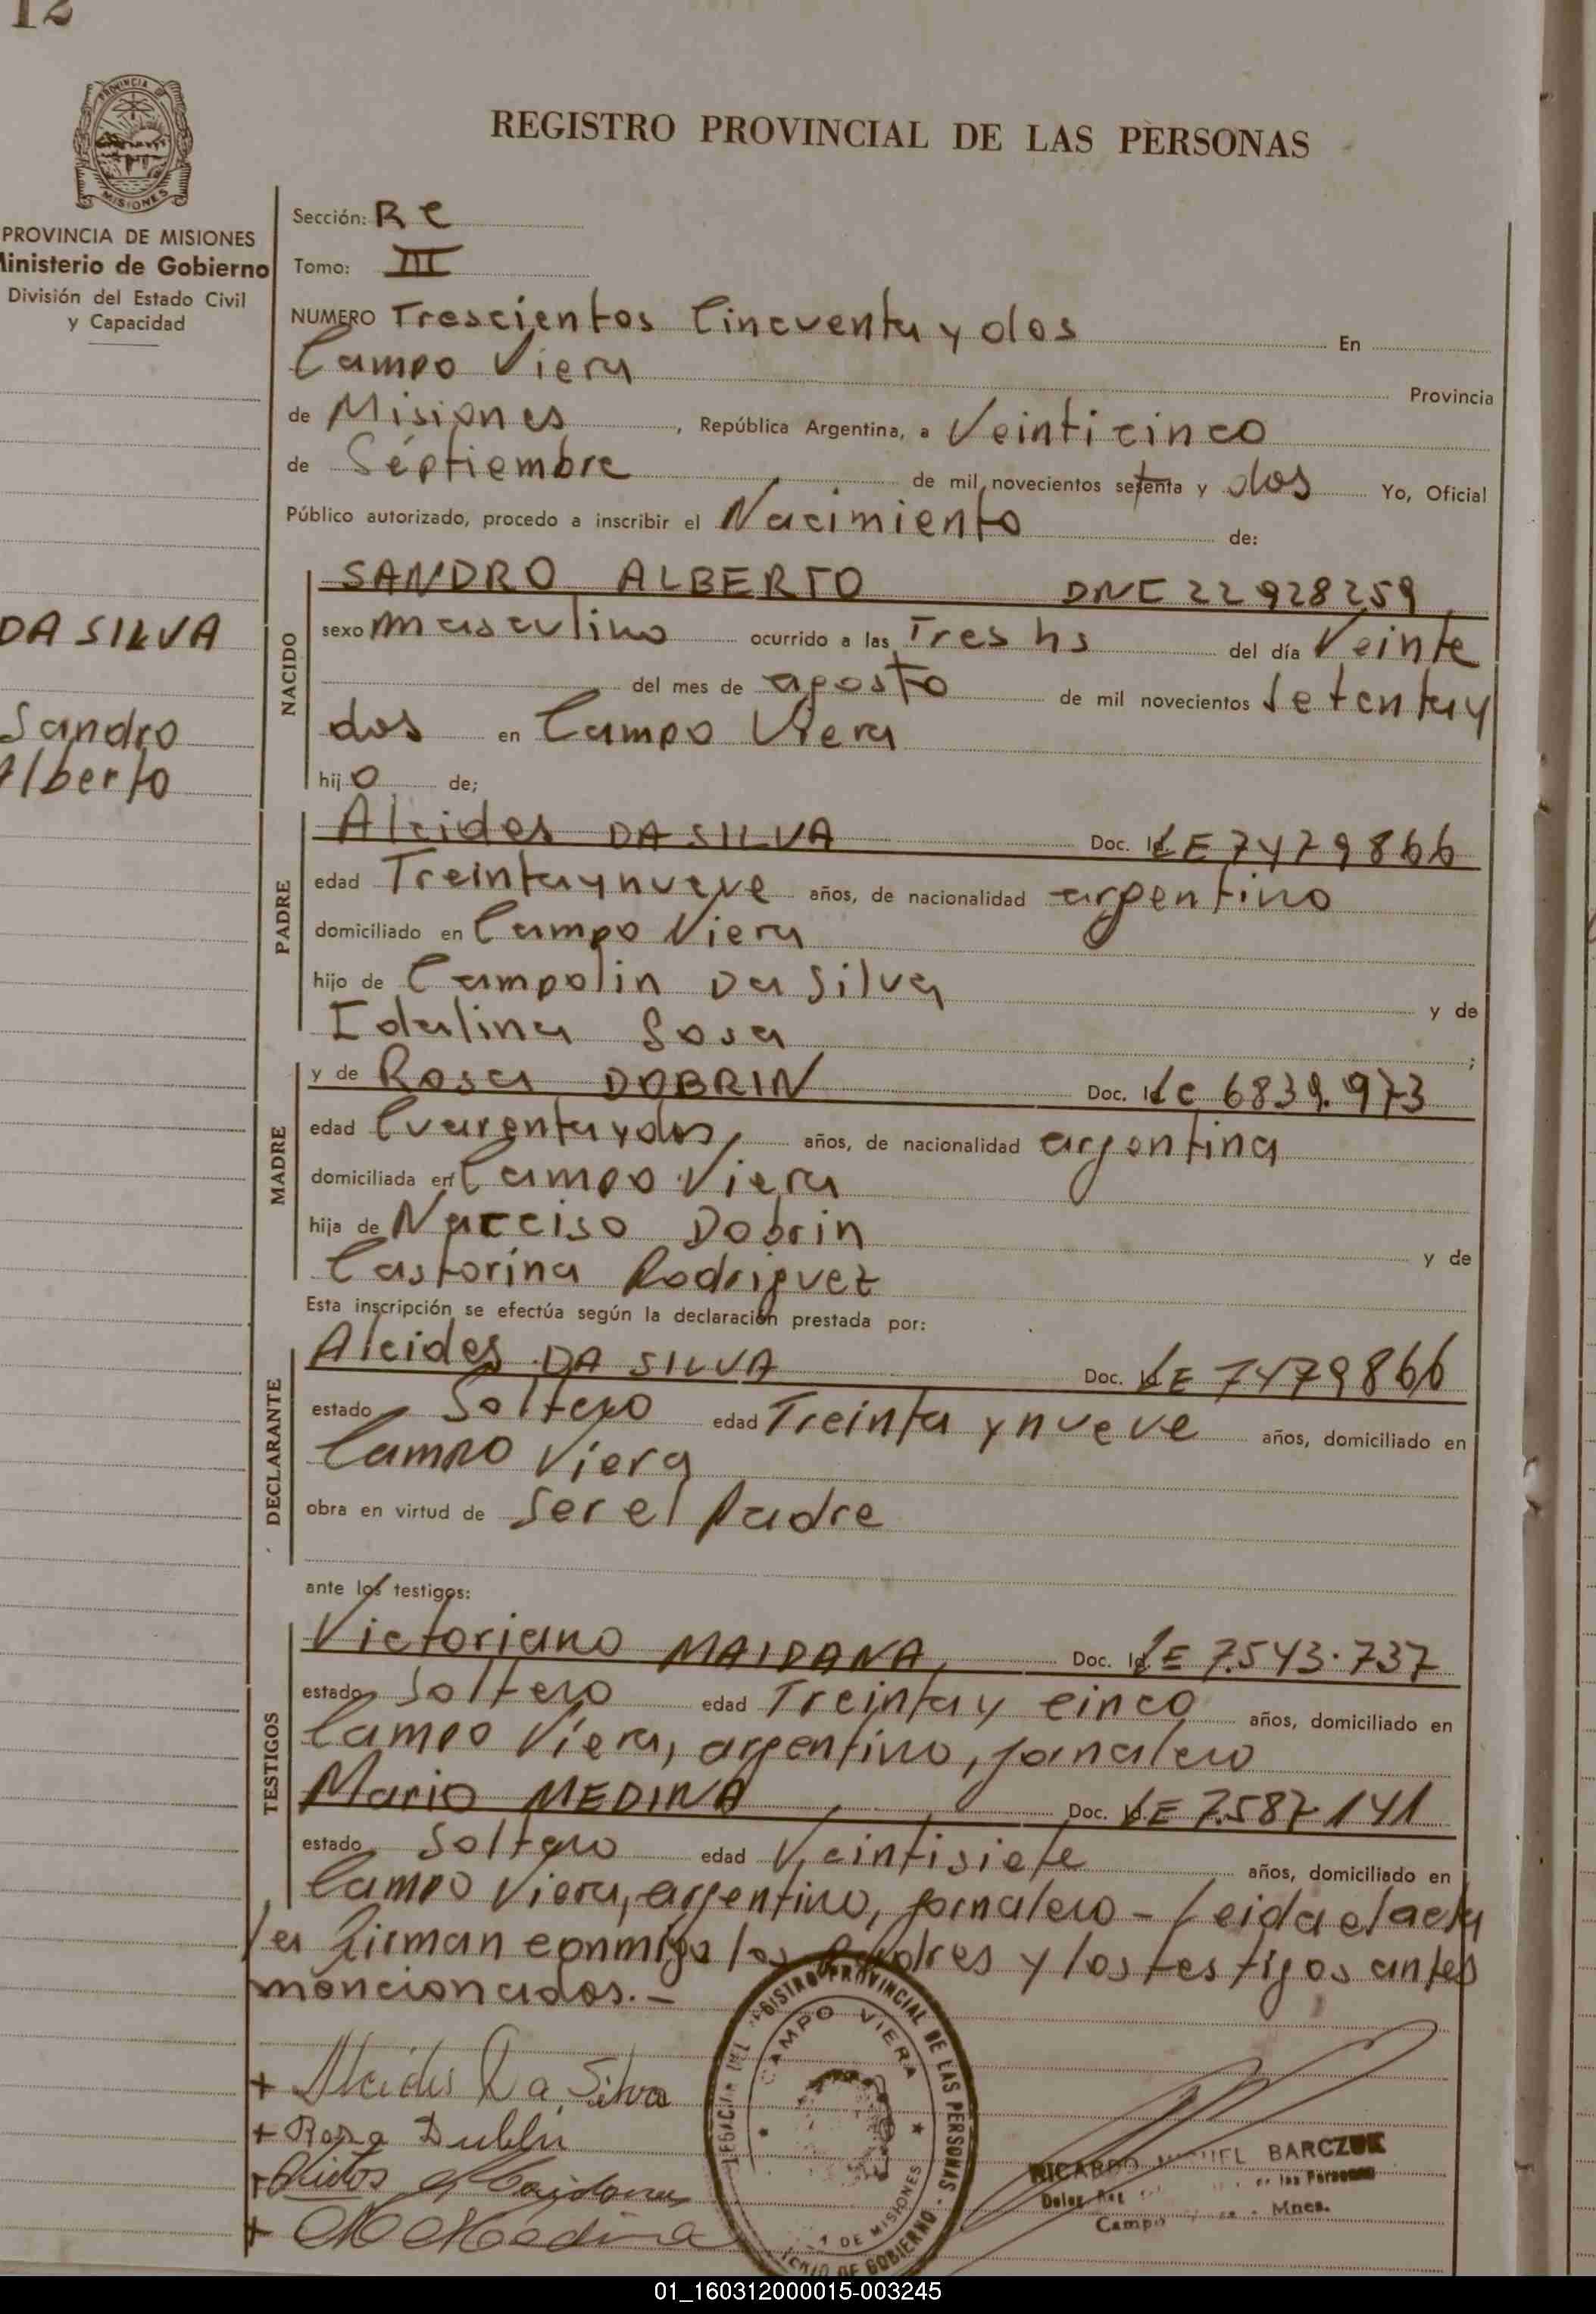 12
PROVINCIA DE
MISIONES
PROVINCIA DE MISIONES
Ministerio de Gobierno
División del Estado Civil
y Capacidad
DA SILVA
Sandro
Alberto
REGISTRO PROVINCIAL DE LAS PERSONAS
Sección: Re
Tomo: III
NUMERO Trescientos Cincuenta y dos En
Campo Viera Provincia
de Misiones, República Argentina, a Veinticinco
de Septiembre de mil novecientos setenta y dos Yo, Oficial
Público autorizado, procedo a inscribir el Nacimiento de:
NACIDO
SANDRO ALBERTO DNI 22928259
sexo masculino ocurrido a las Tres hs del día Veinte
del mes de agosto de mil novecientos setenta y
dos en Campo Viera
hijo de;
PADRE
Alcides DA SILVA Doc. Id. LE 7479866
edad Treinta y nueve años, de nacionalidad argentino
domiciliado en Campo Viera
hijo de Campolin Da Silva y de
Idalina Sosa ;
MADRE
y de Rosa DOBRIN Doc. Id. LC 6839.973
edad Cuarenta y dos años, de nacionalidad argentina
domiciliada en Campo Viera
hija de Narciso Dobrin y de
Castorina Rodriguez
Esta inscripción se efectúa según la declaración prestada por:
DECLARANTE
Alcides DA SILVA Doc. Id. LE 7479866
estado Soltero edad Treinta y nueve años, domiciliado en
Campo Viera
obra en virtud de ser el Padre
ante los testigos:
TESTIGOS
Victoriano MAIDANA, Doc. Id. LE 7.543.737
estado soltero edad Treinta y cinco años, domiciliado en
Campo Viera, argentino, jornalero
Mario MEDINA, Doc. Id. LE 7.587.141
estado soltero edad Veintisiete años, domiciliado en
Campo Viera, argentino, jornalero - Leida el acta
la firman conmigo los Padres y los testigos antes
mencionados.-
+ Alcides Da Silva
+ Rosa Dublin
Maidana
+ M Medina
REGISTRO PROVINCIAL DE LAS PERSONAS
CAMPO VIERA
DE MISIONES
DE GOBIERNO
RICARDO MIGUEL BARCZUK
Deleg. Reg. de las Personas
Campo Mnes.
01_160312000015-003245